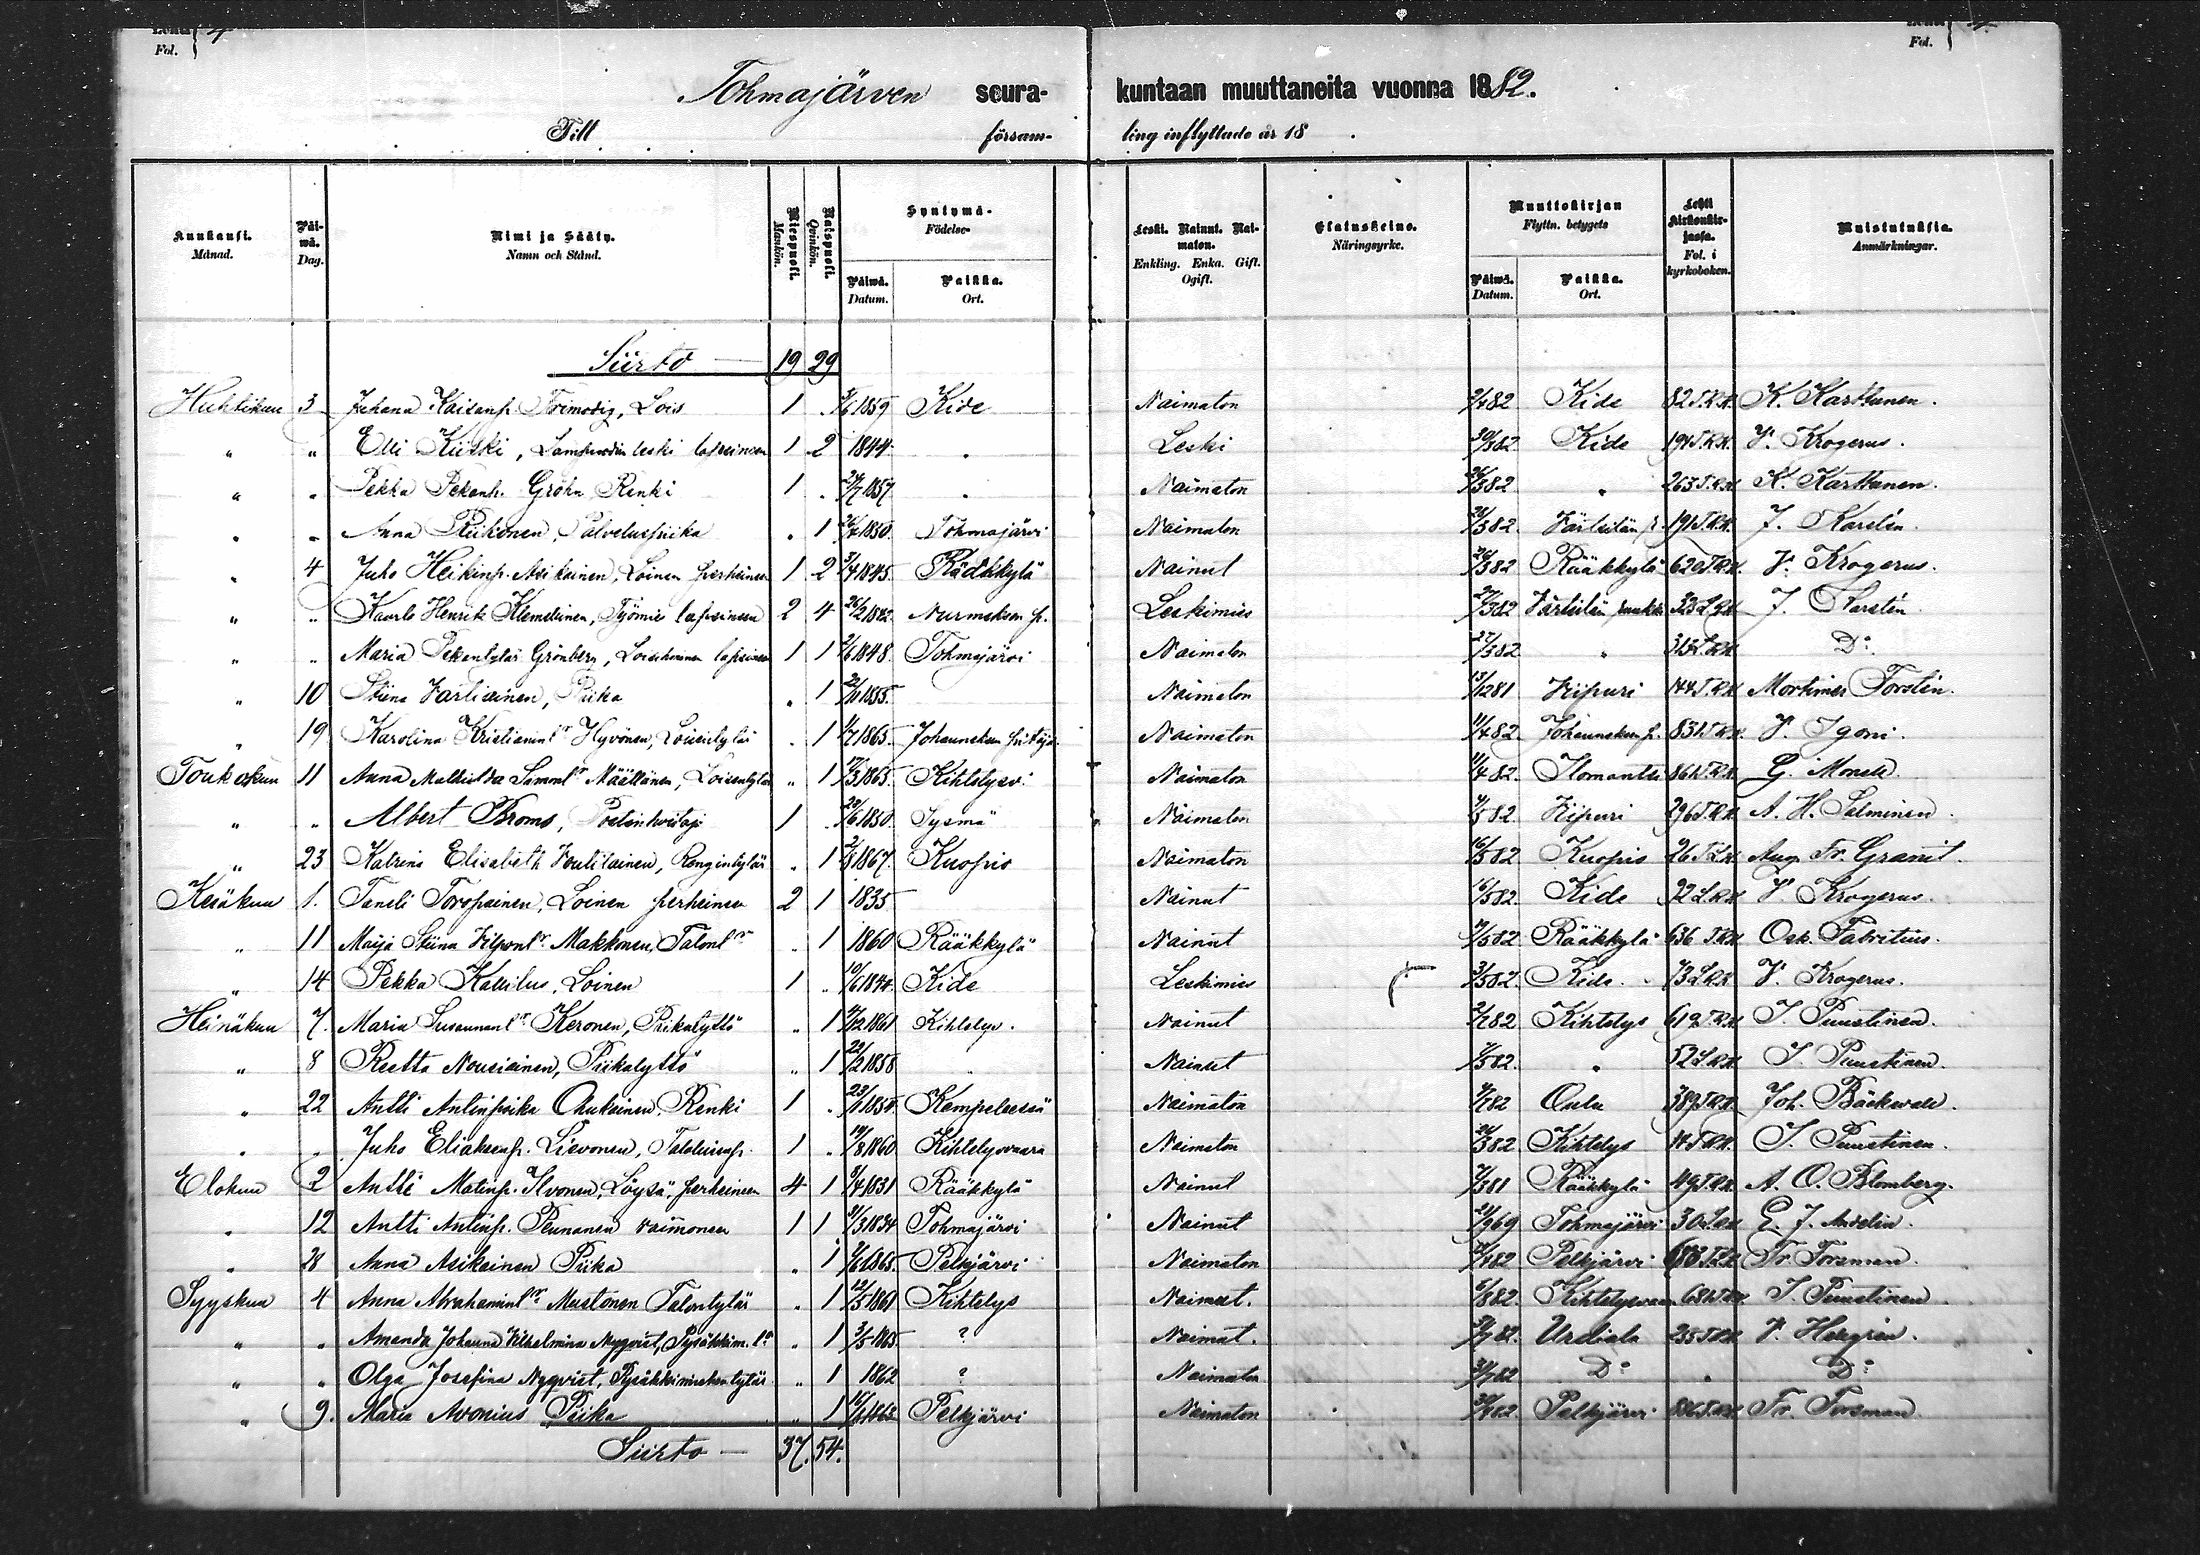 Fol. 4
Fol. 4
Tohmajärven seura- kuntaan muuttaneita vuonna 1882.
Till försam- ling inflyttade år 18 .
Kuukausi. Månad. Päi-wä. Dag. Nimi ja Sääty. Namn och Stånd. Miespuoli. Mankön. Naispuoli. Qvinkön. Syntymä- Födelse- Päiwä. Datum. Paikka. Ort. Leski. Nainut. Naimaton. Enkling. Enka. Gift. Ogift. Elatuskeino. Näringsyrke. Muuttokirjan Flyttn. betygets Päiwä. Datum. Paikka. Ort. Lehti kirkonkirjassa. Fol. i kyrkoboken. Muistutuksia. Anmärkningar.
Siirto — 19 29
Huhtikuu 3 Juhana Kaisanp. Formodig, Lois 1 1859 Kide Naimaton 82 Kide 82 K. Karttunen.
" " Elli Kiiski, leski lapsineen 1 2 1844 " Leski 30/3 82 Kide V. Krogerus.
" " Pekka Pekanp. Gröhn Renki 1 " 24/7 1857 " Naimaton 26/3 82 " 263 K. Karttunen.
" " Anna Riikonen, Palveluspiika " 1 1850 Tohmajärvi Naimaton 3 82 Värtsilän 191 J. Karstén.
" 4 Juho Heikinp. Asikainen, Loinen perheineen 1 2 3/4 1845 Rääkkylä Nainut 26/3 82 Rääkkylä 620 V. Krogerus.
" " Kaarlo Henrik Klemetinen, Työmies lapsineen 2 4 26/2 1842 Nurmeksen p. Leskimies 27/3 82 Värtsilän ruukki 323 J. Karstén
" " Maria Pekantytär Grönberg, lapsineen 1 1 2/6 1848 Tohmajärvi Naimaton 27/3 82 " 313 D:o
" 10 Stiina Vartiainen, Piika " 1 1855 Naimaton 13/12 81 Viipuri 144 Mortimer Torstén.
" 19 Karolina Hyvönen, Loisentytär " 1 1/7 1865 Johanneksen pitäjä Naimaton 11/4 82 Johanneksen p. 831 V. Igoni.
Toukokuu 11 Anna Mathilda Määttänen, Loisentytär " 1 1865 Kihtelysv. Naimaton 11/4 82 Ilomantsi 861 G. Monell.
" " Albert Broms, 1 " 1850 Sysmä Naimaton 5 82 Viipuri 296 A. H. Salminen.
" 23 Katrina Elisabeth Voutilainen, Rengintytär " 1 2/8 1867 Kuopio Naimaton 16/5 82 Kuopio 26 Aug. Fr. Granit.
Kesäkuu 1. Taneli Toropainen, Loinen perheineen 2 1 1835 Nainut 16/5 82 Kide 92 V. Krogerus.
" 11 Maija Stiina Makkonen, " 1 1860 Rääkkylä Nainut 5 82 Rääkkylä 636 Osk. Fabritius.
" 14 Pekka Kallilus, Loinen 1 " 10/6 1844 Kide Leskimies 3/5 82 Kide 73 V. Krogerus.
Heinäkuu 7. Maria Keronen, Piikatyttö " 1 12 1861 Kihtelys. Nainut 82 Kihtelys 619 I. Puustinen.
" 8 Reetta Nousiainen, Piikatyttö " 1 22/2 1858 " Nainut 5 82 " 52 I. Puustinen.
" 22 Antti Antinpoika Renki 1 " 1850 Kempeleessä Naimaton 82 Oulu 389 Joh. Bäckvall.
" " Juho Eliaksenp. Sievonen, 1 " 19/8 1860 Kihtelysvaara Naimaton 3 82 Kihtelys I. Puustinen.
Elokuu 2 Antti Matinp. Ilvonen, Löysä, perheineen 4 1 8/4 1831 Rääkkylä Nainut 3 81 Rääkkylä 49 A. O. Blomberg.
" 12 Antti Antinp. Pennanen vaimoneen 1 1 3 1834 Tohmajärvi Nainut 21/9 69 Tohmajärvi 30 E. J. Andelin.
" 28 Anna Asikainen Piika " 1 6 1865 Pelkjärvi Naimaton 4 82 Pelkjärvi Fr. Forsman.
Syyskuu 4 Anna Mustonen Talontytär " 1 12/5 1861 Kihtelys Naimat. 6/8 82 Kihtelysvaara 681 I. Puustinen
" " Amanda Johanna Vilhelmina Nyqvist, " 1 3/5 1865 ? Naimat. 7 82 Urdiala 235 V. Helgrén.
" " Olga Josefina Nyqvist, " 1 1862 ? Naimaton 7 82 D:o " D:o
" 9. Maria Avonius Piika " 1 1863 Pelkjärvi Naimaton 82 Pelkjärvi Fr. Forsman.
Siirto — 37. 54.